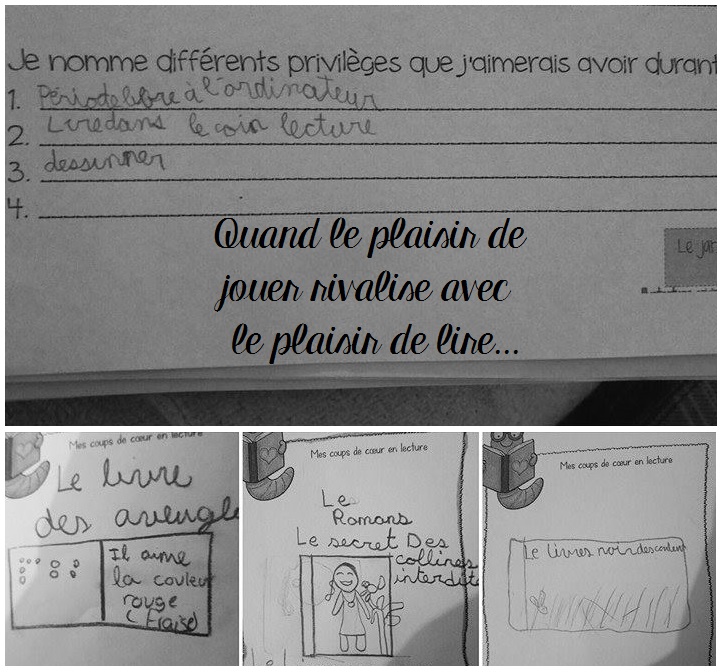 Je nomme différents privilèges que j'aimerais avoir durant
1. Périodelibre à l'ordinateur
2. Liredans le coin lecture
3. dessinner
4.
Quand le plaisir de
jouer rivalise avec
le plaisir de lire...
Le jar
Mes coups de cœur en lecture
Le livre
des aveugle
Il aime
la couleur
rouge
(fraise)
Mes coups de cœur en lecture
Le
Romans
Le secret Des
collines
interdite
Mes coups de cœur en lecture
Le livres noirdescouleur